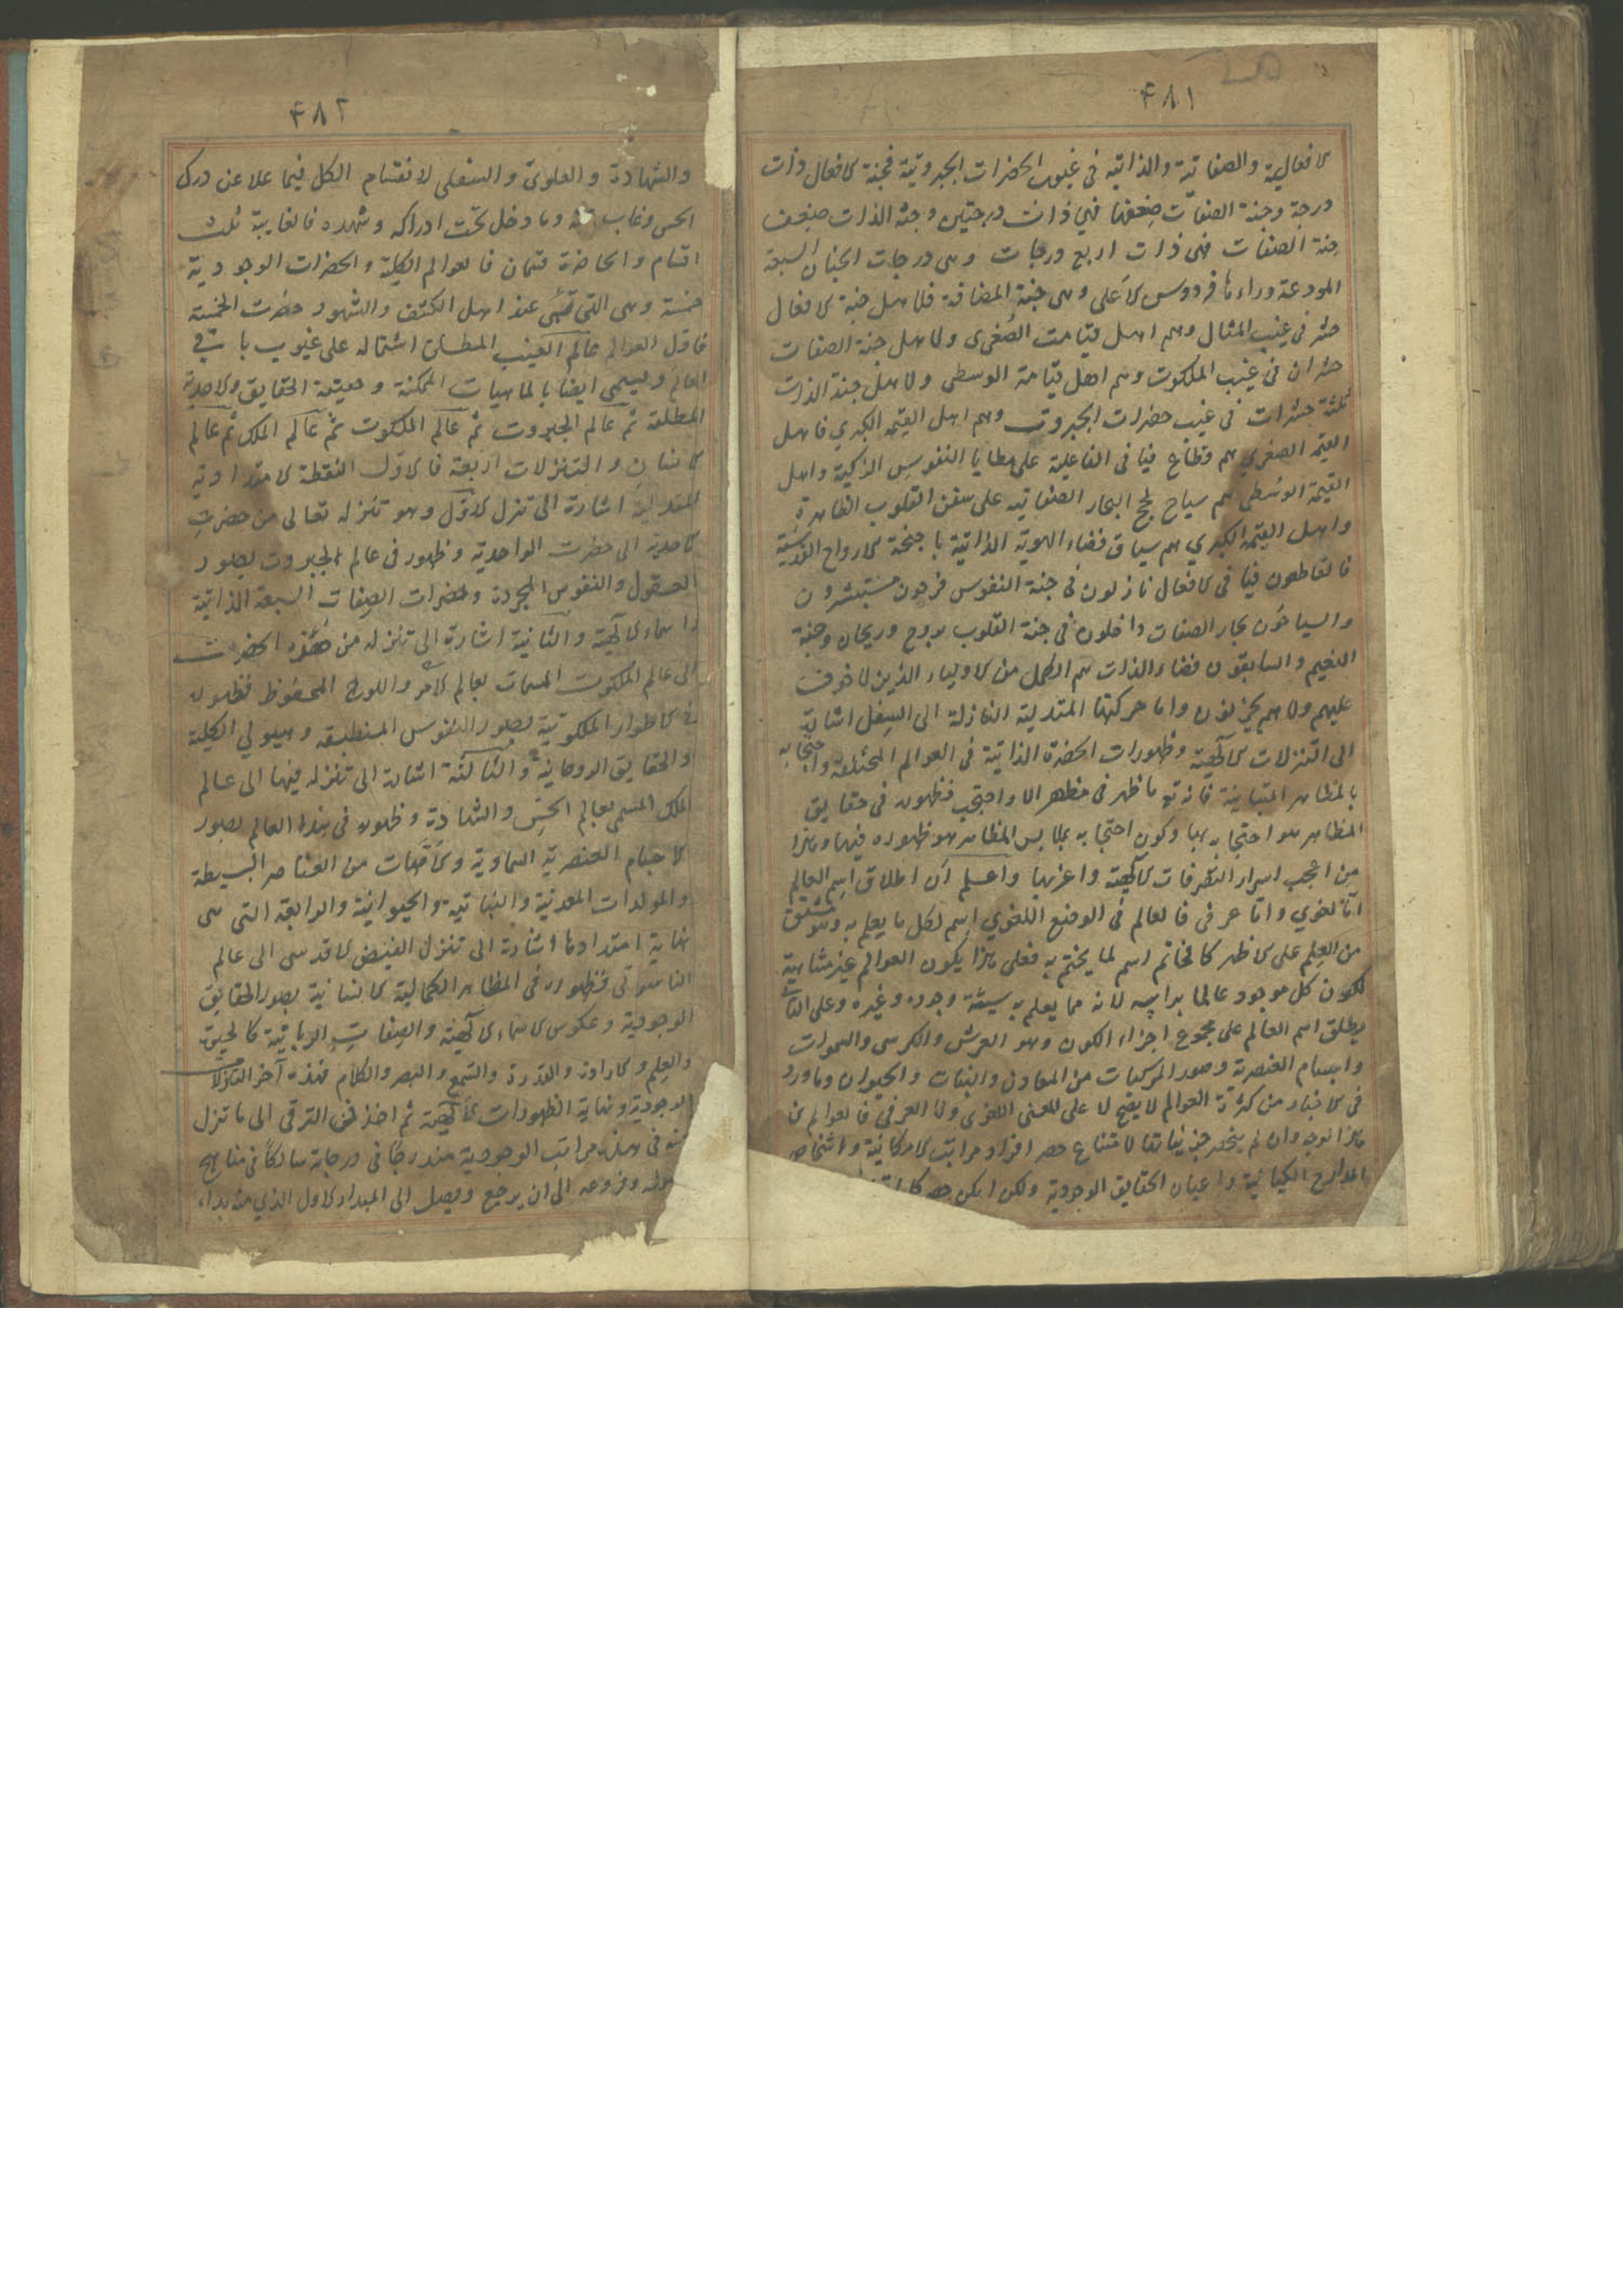 ۴۸۱
الافعالية والصفاتية والذاتية فى غيوب الحضرات الجبروتية فجنة الافعال ذات
درجة وجنة الصفات ضعفها فهي ذات درجتين وجنة الذات ضعف
جنة الصفات فهى ذات اربع درجات وهى درجات الجنان السبعة
المودعة وراءها فردوس الاعلى وهى جنة المضافة فلاهل جنة الافعال
حشر فى غيب المثال وهم اهل قيامت الصغرى ولاهل جنة الصفات
حشران فى غيب الملكوت وهم اهل قيامة الوسطى ولاهل جنة الذات
ثلثة حشرات فى غيب حضرات الجبروت وهم اهل القيمة الكبرى فاهل
القيمة الصغرى هم قطاع فيا فى الفاعلية على مطايا النفوس الزكية واهل
القيمة الوسطى هم سياح لجج البحار الصفاتيه على سفن القلوب الطاهرة
واهل القيمة الكبرى هم سباق فضاء الهوية الذاتية باجنحة الارواح القدسية
فالقاطعون فيا فى الافعال نازلون فى جنة النفوس فرحون مستبشرون
والسياحون بحار الصفات داخلون فى جنة القلوب بروح وريحان وجنة
النعيم والسابقون فضاء الذات هم الكمل من الاولياء الذين لا خوف
عليهم ولا هم يحزنون واما حركتها المتدلية النازلة الى السفل اشارة
الى التنزلات الالهية وظهورات الحضرة الذاتية فى العوالم المختلفة واحتجابه
بالمظاهر المتباينة فانه تع ما ظهر فى مظهر الا واحتجب فظهوره فى حقايق
المظاهر هو احتجابه بها وكون احتجابه بملابس المظاهر هو ظهوره فيها وهذا
من اعجب اسرار التصرفات الالهية واعزبها واعلم ان اطلاق اسم العالم
اما لغوي واما عرفى فالعالم فى الوضع اللغوي اسم لكل ما يعلم به وهو مشتق
من العلم على الاظهر كالخاتم اسم لما يختم به فعلى هذا يكون العوالم غير متناهية
لكون كل موجود عالما براسه لانه مما يعلم به سيئة وجوده وغيره وعلى الثانى
يطلق اسم العالم على مجموع اجزاء الكون وهو العرش والكرسى والسموات
واجسام العنصرية وصور المركبات من المعادن والنبات والحيوان وما ورد
فى الاخبار من كثرة العوالم لا يصح الا على المعنى اللغوى واما العرفى فالعوالم من
هذا الوجه وان لم ينحصر جزئياتها لامتناع حصر افراد مراتب الامكانية واشخاص
المدارج الكيانية واعيان الحقايق الوجودية ولكن امكن حصر
۴۸۲
والشهادة والعلوى والسفلى لانقسام الكل فيما علا عن درك
الحس وغاب عنه وما دخل تحت ادراكه وشهده فالغايبة ثلث
اقسام والحاضرة قسمان فالعوالم الكلية والحضرات الوجودية
خمسة وهى التى تسمى عند اهل الكشف والشهود حضرت الخمسة
فاول العوالم عالم الغيب المطلق اشتماله على غيوب باقى
العالم ويسمى ايضا بالماهيات الممكنة وحقيقة الحقايق والاحدية
المطلقة ثم عالم الجبروت ثم عالم الملكوت ثم عالم الملك ثم عالم
الانسان والتنزلات اربعة فالاول النقطة الامتدادية
المتدلية اشارة الى تنزل الاول وهو تنزله تعالى من حضرت
الاحدية الى حضرت الواحدية وظهور فى عالم الجبروت بصور
العقول والنفوس المجردة وحضرات الصفات السبعة الذاتية
واسماء الالهية والثانية اشارة الى تنزله من هذه الحضرت
الى عالم الملكوت المسمات بعالم الامر واللوح المحفوظ فظهوره
فى الاطوار الملكوتية بصور النفوس المنطبقه وهيولي الكلية
والحقايق الروحانية والثالثة اشارة الى تنزله فيها الى عالم
الملك المسمى بعالم الحس والشهادة وظهوره فى هذا العالم بصور
الاجسام العنصرية السماوية والامهات من العناصر البسيطة
والمولدات المعدنية والنباتية والحيوانية والرابعة التى هى
نهاية امتدادها اشارة الى تنزل الفيض الاقدسى الى عالم
الناسوتى فظهوره فى المظاهر الكمالية الانسانية بصور الحقايق
الوجودية وعكوس الاسماء الالهية والصفات الربانية كالحيوة
والعلم والارادة والقدرة والسمع والبصر والكلام فهذه آخر التنزلات
الوجودية ونهاية الظهورات الالهية ثم اخذ فى الترقى الى ما تنزل
منه فى سلسلة مراتب الوجودية مندرجا فى درجاته سالكا فى مناهج
وفروعه الى ان يرجع ويصل الى المبداء الاول الذي منه بداء